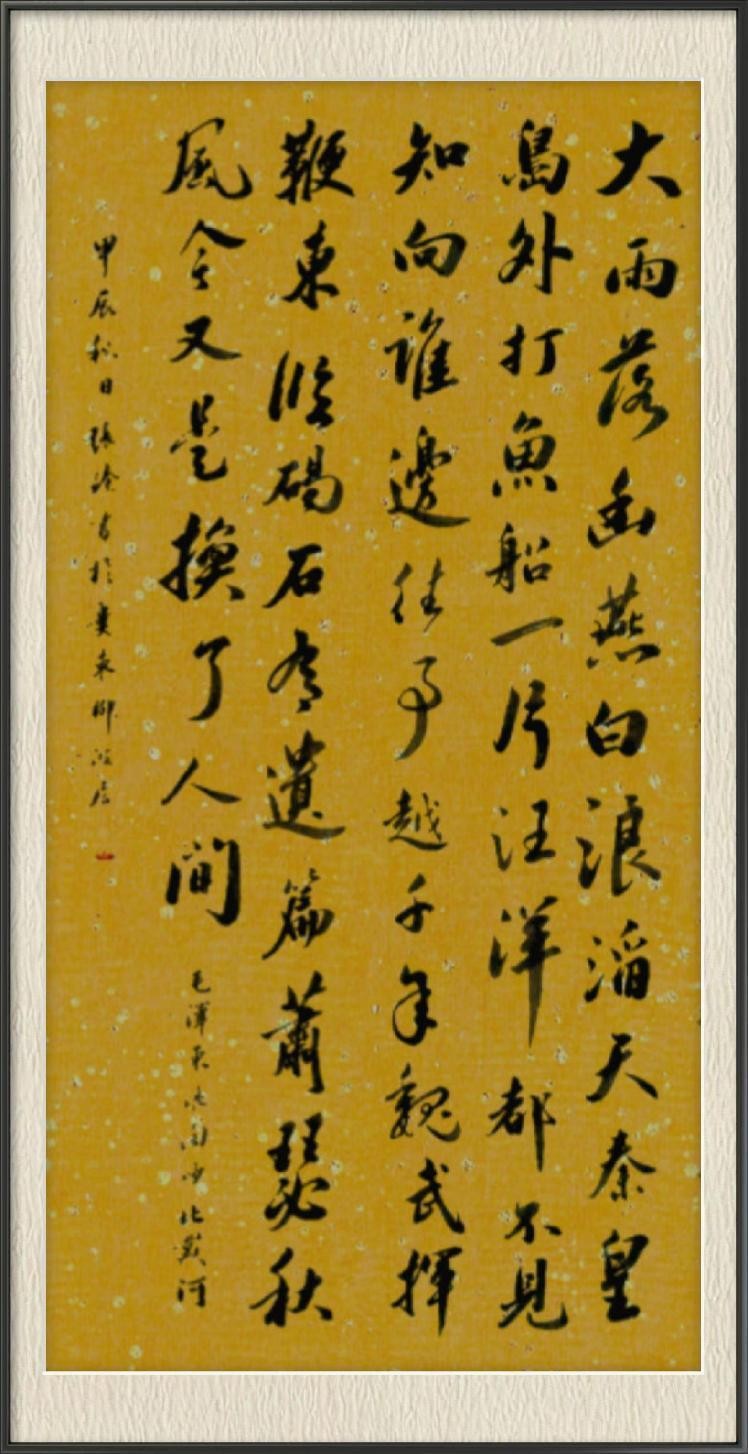 大雨落幽燕白浪滔天秦皇
島外打魚船一片汪洋都不見
知向誰邊往事越千年魏武揮
鞭東臨碣石有遺篇蕭瑟秋
風今又是換了人間
毛澤東浪淘沙北戴河
甲辰秋日張書於